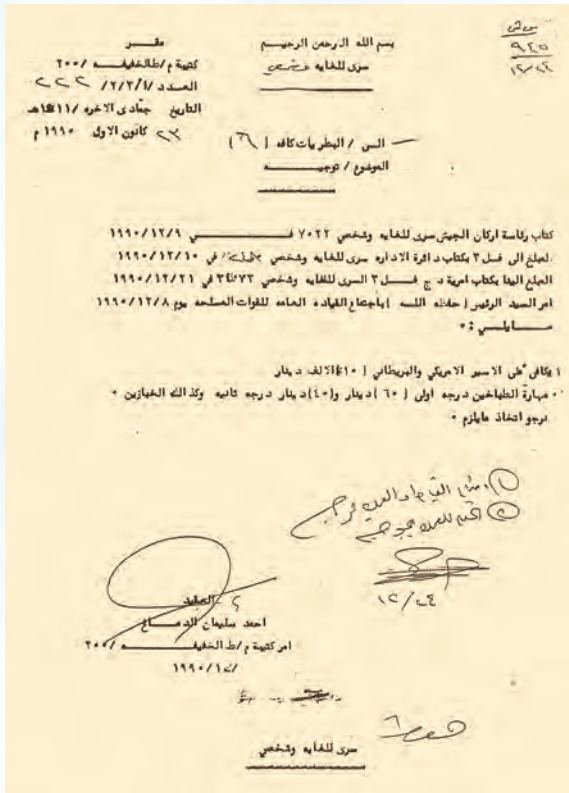 مقـــر
كتيبة م/ط الخفيفـــه /٢٠٠
العدد /٢/٣/١/ ٢٢٢
التاريخ جمادى الاخره /١٤١١هـ
٢٣ كانون الاول ١٩٩٠ م
بسم الله الرحمن الرحيم
سرى للغايه وشخصي
٩٤٥
١٢/٢٤
الــى / البطريات كافه (٦)
الموضوع / توجيـــه
كتاب رئاسة اركان الجيش سرى للغايه وشخصي ٧٠٢٢ فـــي ١٩٩٠/١٢/٩
المبلغ الى فـل ٣ بكتاب دائرة الاداره سرى للغايه وشخصي في ١٩٩٠/١٢/١٠
المبلغ الينا بكتاب امرية د ج فـــل ٣ السرى للغايه وشخصي في ١٩٩٠/١٢/٢١
امر السيد الرئيس ( حفظه اللـــه ) باجتماع القياده العامه للقوات المسلحه يوم ١٩٩٠/١٢/٨
مـــايلـــي :٠
يكافىء على الاسير الامريكي والبريطاني (١٠) الالف دينار
مهارة الطباخين درجه اولى (٦٠) دينار و(٤٠) دينار درجه ثانيه وكذالك الخبازين ٠
نرجو اتخاذ مايلزم ٠
١٢/٢٤
العقيد
احمد سليمان الدبـــاغ
امر كتيبة م/ط الخفيفـــه /٢٠٠
/١٩٩٠/١٢
سرى للغايه وشخصي